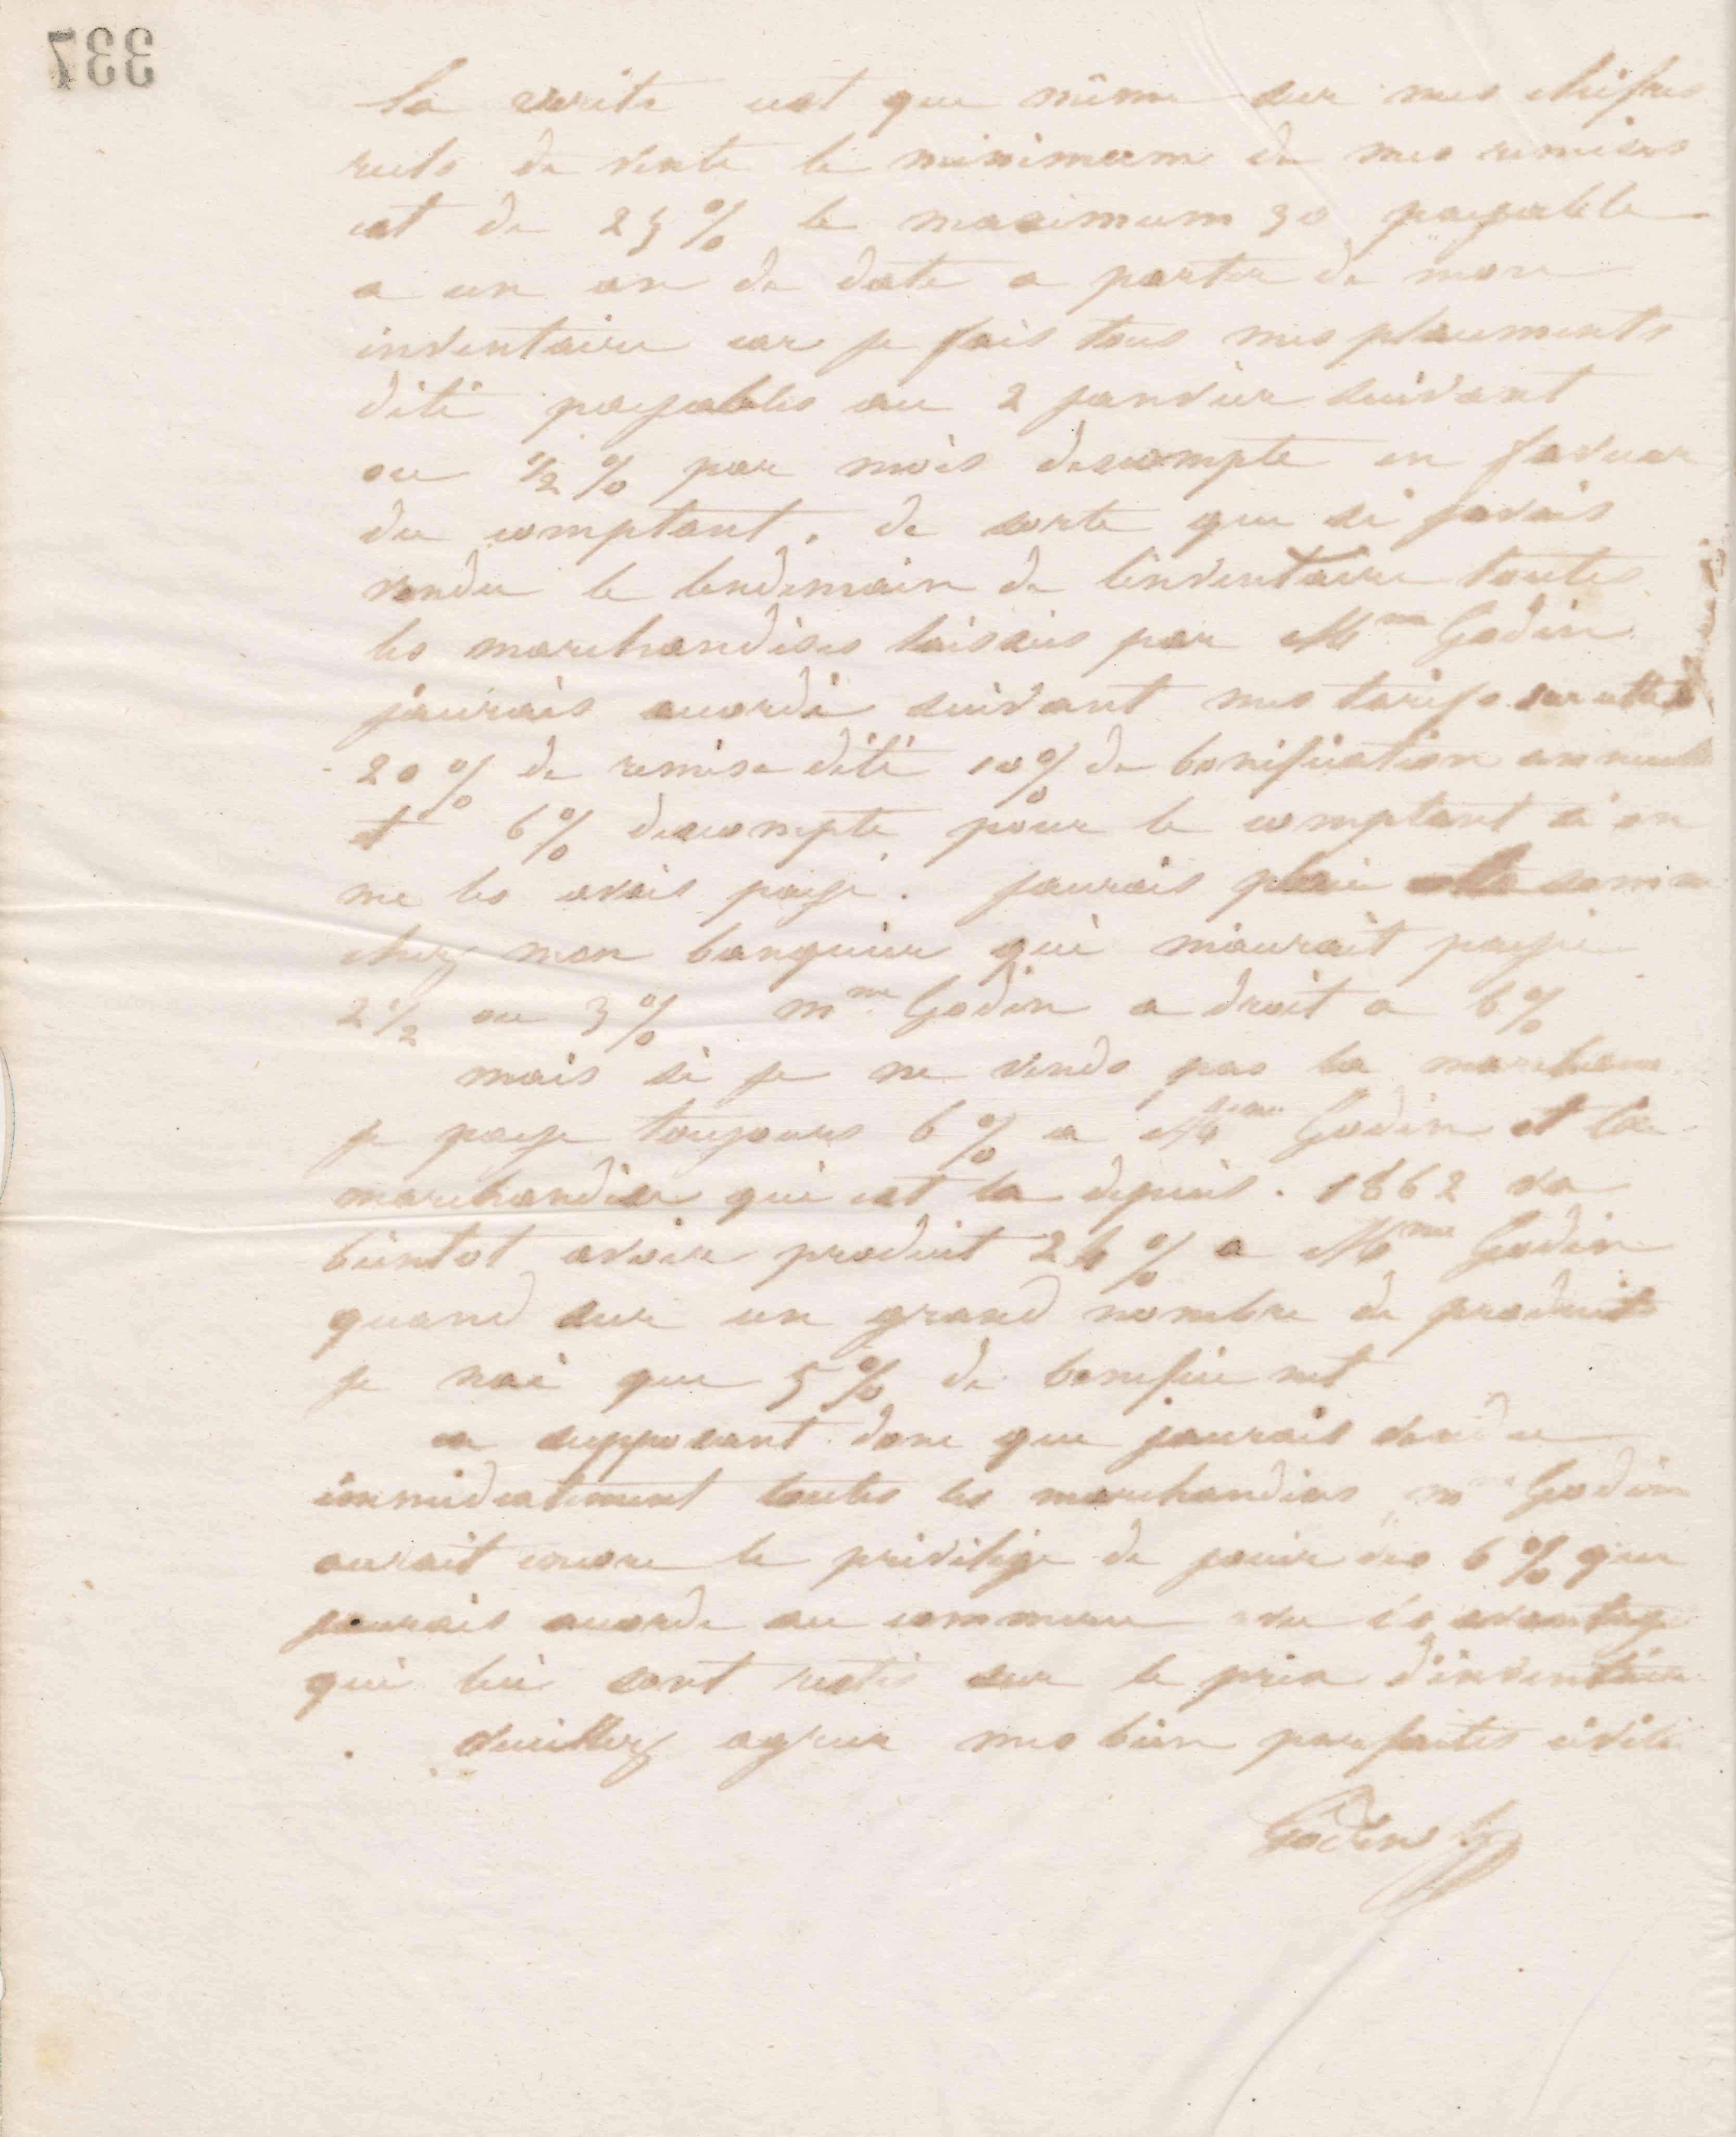 337
La verité est que même sur mes chifres
reels de vente le minimum de mes remises
est de 25 % le maximum 30 payable
a un an de date a partir de mon
inventaire car je fais tous mes placements
dété payables au 2 janvier suivant
ou ½ % par mois descompte en faveur
du comptant. de sorte que si javais
vendu le lendemain de linventaire toutes
les marchandises laissées par Mme Godin
jaurais accordé suivant mes tarifs sur
20 % de remise dété 10 % de bonification annuelle
et 6 % descompte pour le comptant si on
me les avais payé. jaurais placé cette somme
chez mon banquier qui maurait payé
2 ½ ou 3 % mme Godin a droit a 6 %
mais si je ne vends pas la
je paye toujours 6 % a Mme Godin et la
marchandise qui est la depuis. 1862 va
bientot avoir produit 24 % a Mme Godin
quand sur un grand nombre de produits
je nai que 5 % de benefice net
en supposant donc que jaurais vendu
immediatement toutes les marchandises mme Godin
aurait encore le privilége de jouir des 6 % que
jaurais accordé au commerce avantage
qui lui sont restés sur le prix dinventaire
veuillez agreer mes bien parfaites
Godin